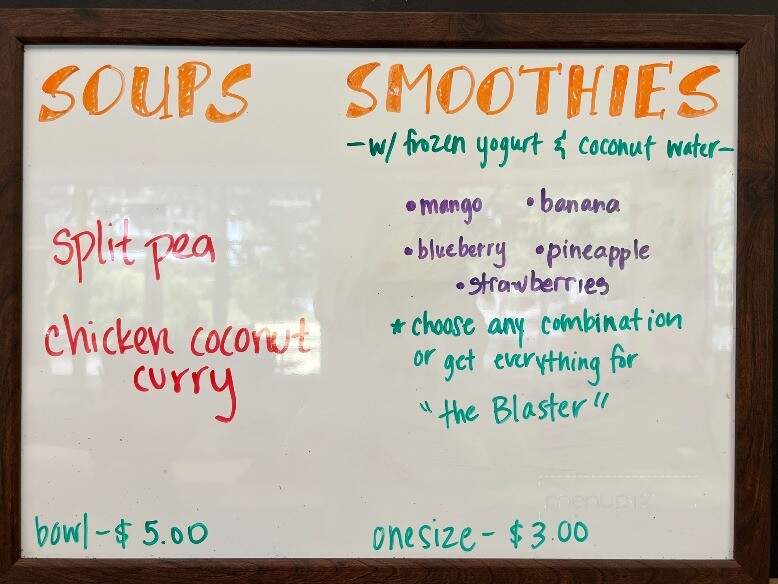 SOUPS
split pea
chicken coconut
curry
bowl - $ 5.00
SMOOTHIES
- w/ frozen yogurt & coconut water -
• mango • banana
• blueberry • pineapple
• strawberries
* choose any combination
or get everything for
"the Blaster"
onesize - $3.00